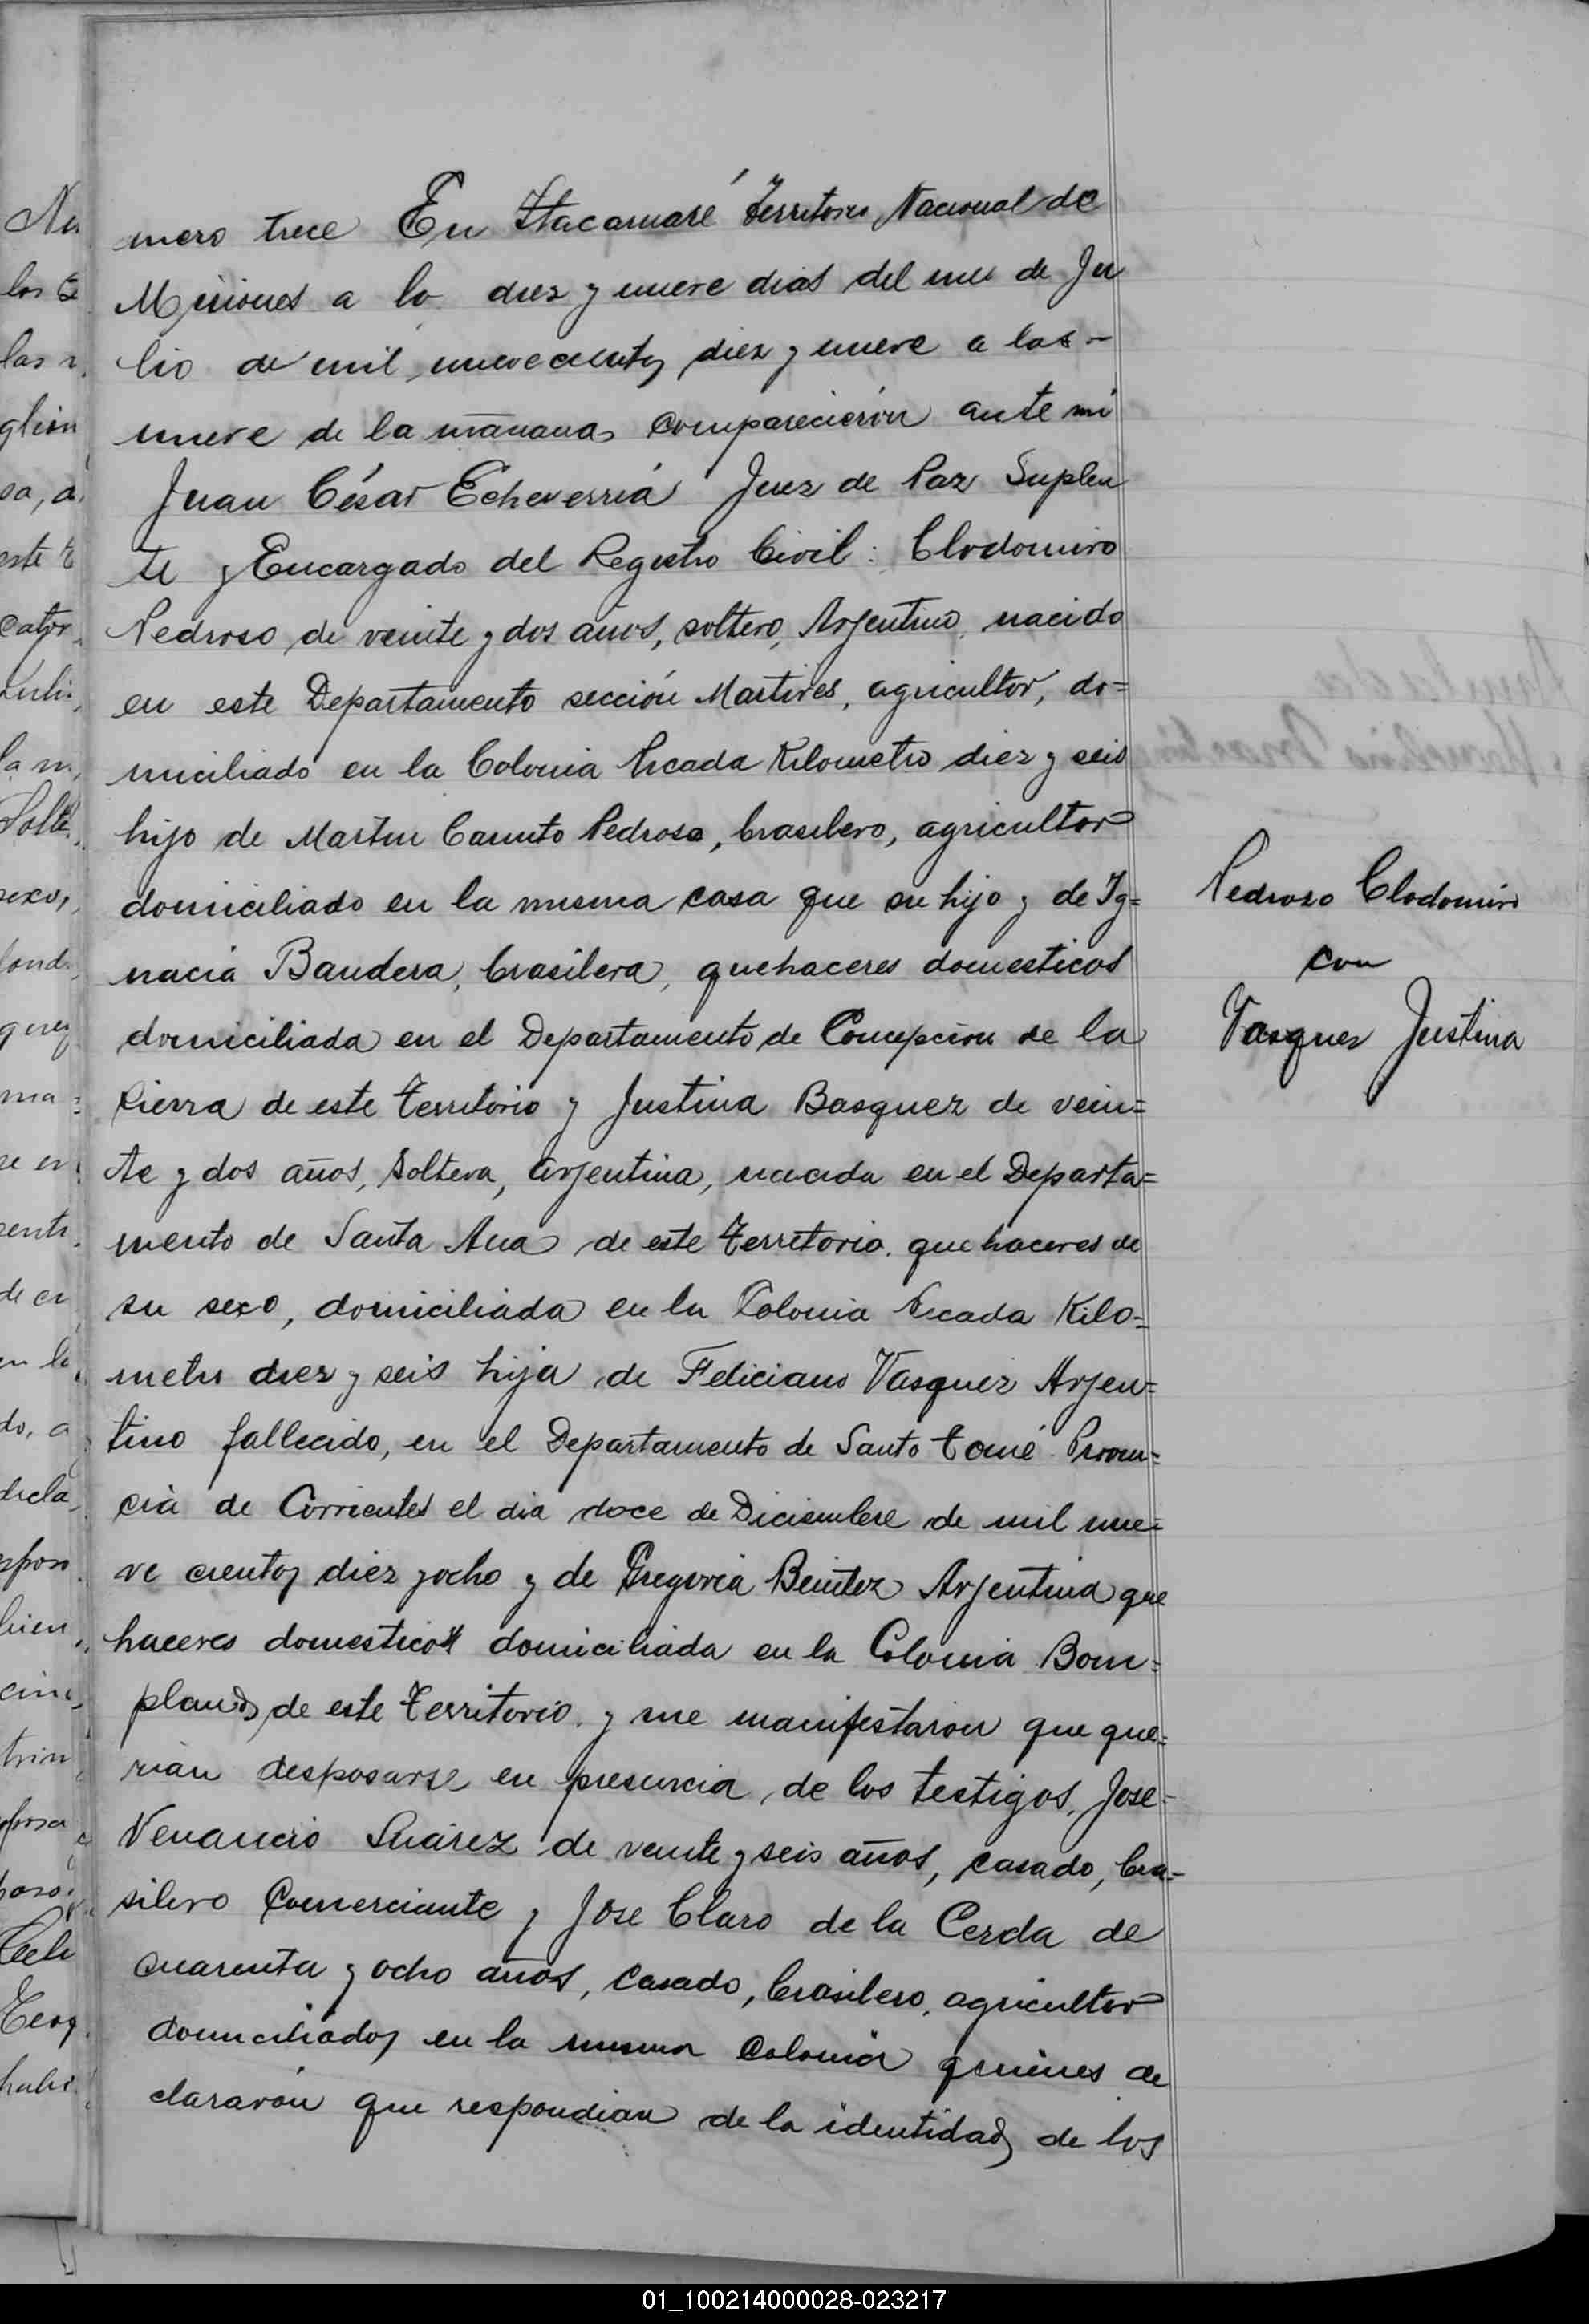 mero trece En Itacaruaré Territorio Nacional de
Misiones a lo diez y nueve dias del mes de Ju
lio de mil nuevecientos diez y nueve a las -
nueve de la mañana, comparecieron ante mi
Juan César Echeverria Juez de Paz Suplen
te y Encargado del Registro Civil: Clodomiro
Pedroso de veinte y dos años, soltero, Argentino, nacido
en este Departamento sección Martires, agricultor, do=
miciliado en la Colonia Picada Kilometro diez y seis
hijo de Martin Canuto Pedroso, brasilero, agricultor
domiciliado en la misma casa que su hijo y de Ig=
nacia Bandera, brasilera, quehaceres domesticos
domiciliada en el Departamento de Concepcion de la
Sierra de este territorio y Justina Basquez de vein=
te y dos años, soltera, argentina, nacida en el Departa=
mento de Santa Ana de este territorio, que haceres de
su sexo, domiciliada en la Colonia Picada Kilo=
metro diez y seis hija de Feliciano Vasquez Argen=
tino fallecido, en el Departamento de Santo tomé Provin=
cia de Corrientes el dia doce de Diciembre de mil nue=
ve cientos diez y ocho y de Gregoria Benitez Argentina que
haceres domesticos domiciliada en la Colonia Bom=
pland, de este territorio. y me manifestaron que que=
rian desposarse en presencia de los testigos, Jose
Venancio Suárez de veinte y seis años, casado, bra=
silero Comerciante y Jose Claro de la Cerda de
cuarenta y ocho años, casado, brasilero, agricultor
domiciliados en la misma Colonia quienes de
clararon que respondian de la identidad de los
Pedroso Clodomiro
con
Vasquez Justina
01_100214000028-023217